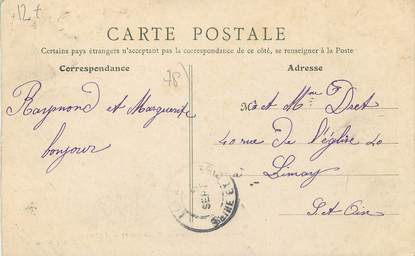 12 +
CARTE POSTALE
Certains pays étrangers n'acceptant pas la correspondance de ce côté, se renseigner à la Poste
Correspondance
Adresse
78
Raymond et Marguerite
bonjour
M. et Mme Dret
40 rue de l'église 40
à Limay
S. et Oise
SEPT
SEINE ET